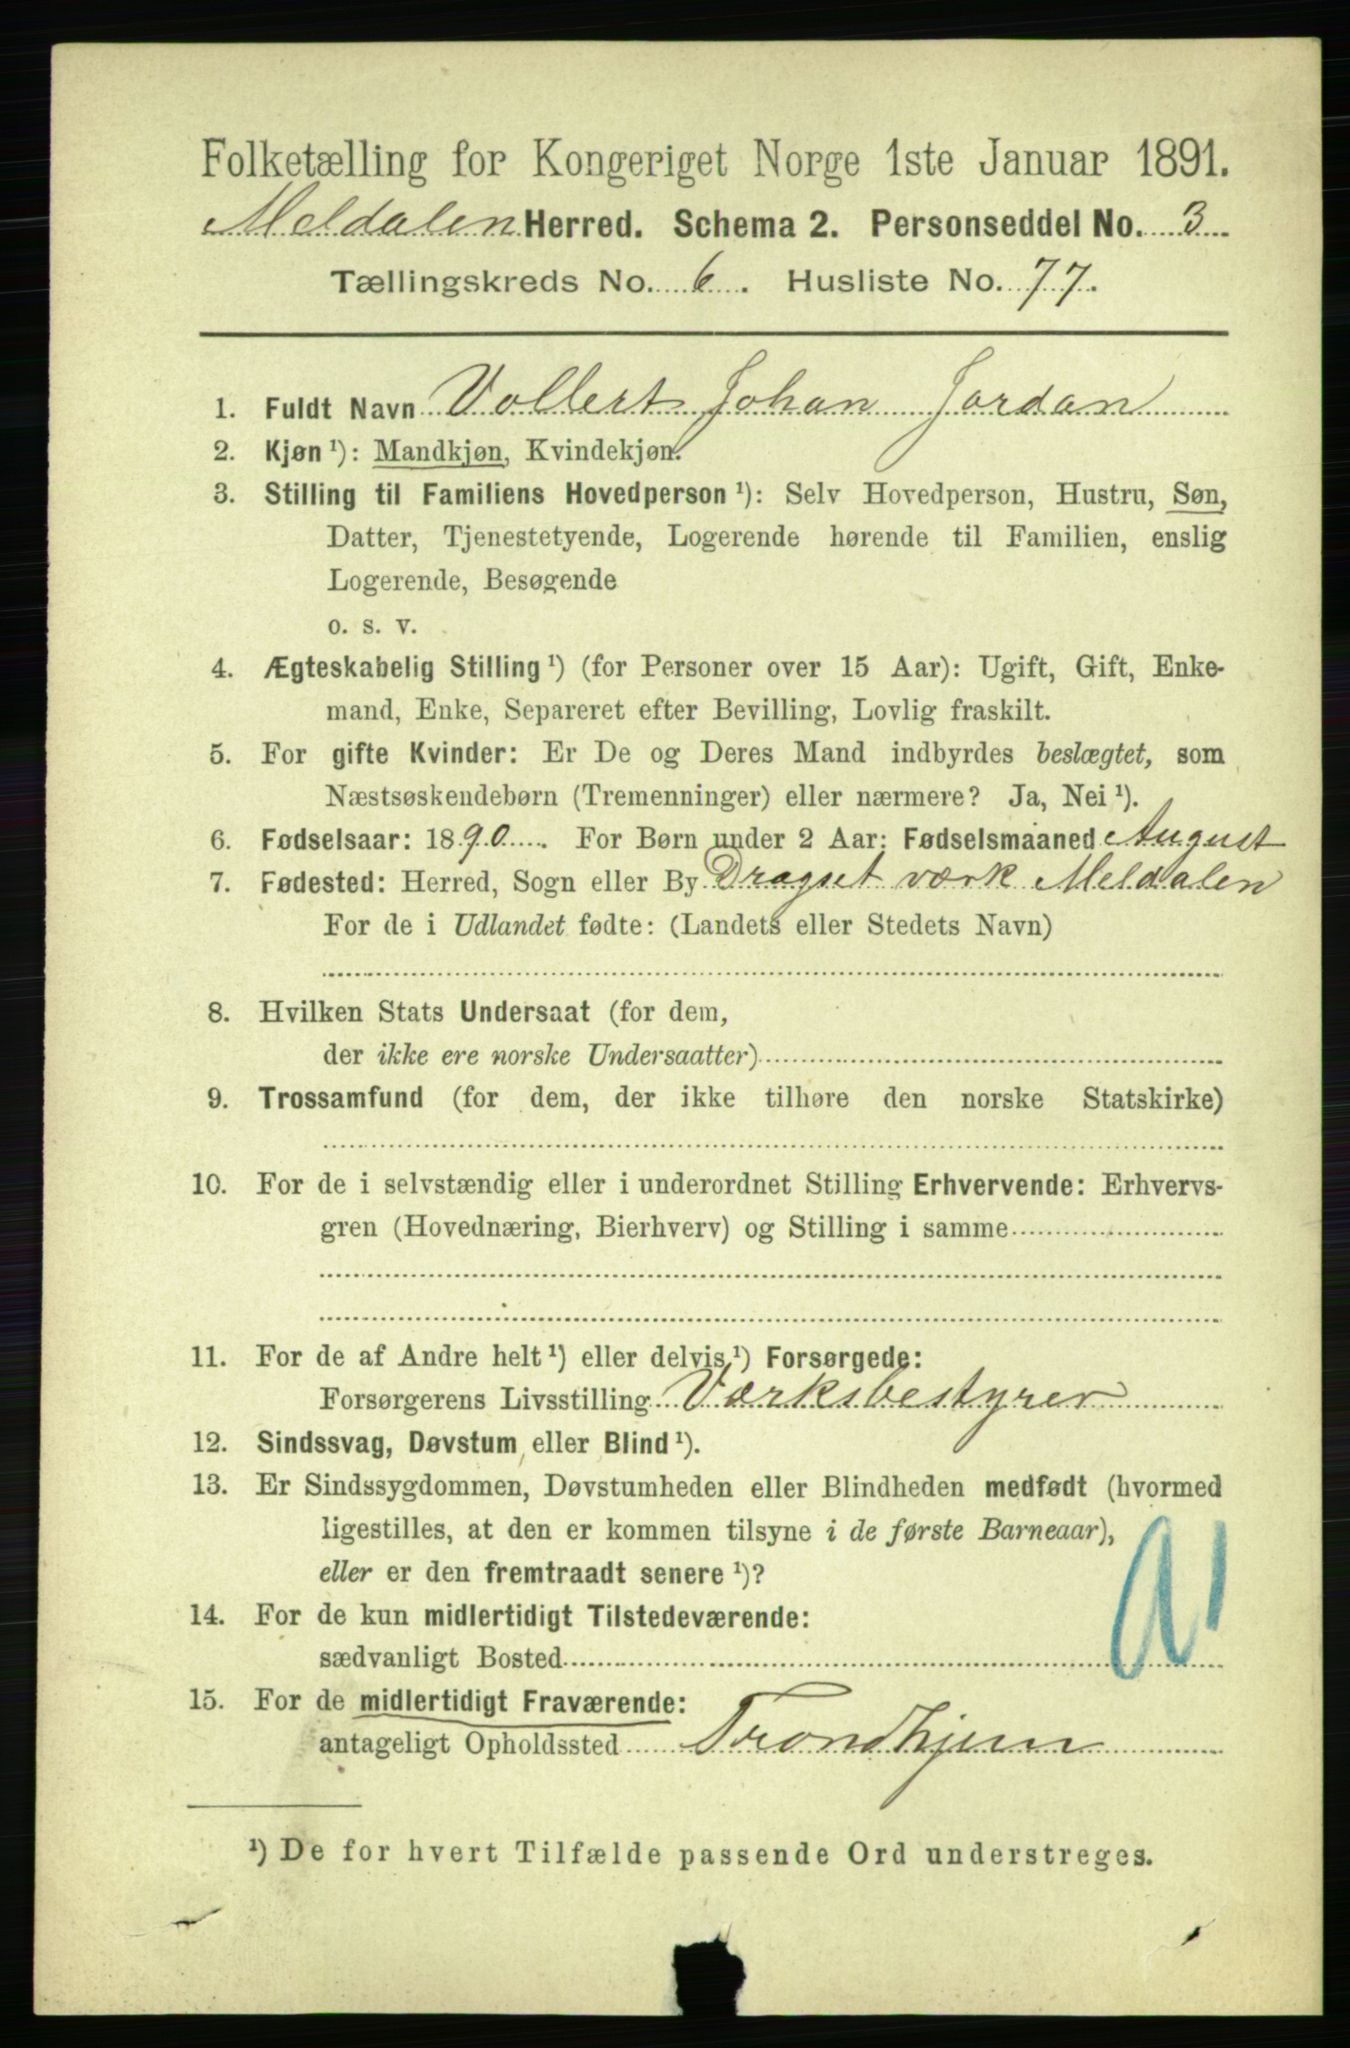 Folketælling for Kongeriget Norge 1ste Januar 1891.
Meldalen Herred. Schema 2. Personseddel No. 3
Tællingskreds No. 6. Husliste No. 77.
1. Fuldt Navn Vollert Johan Jordan
2. Kjøn ¹): Mandkjøn, Kvindekjøn.
3. Stilling til Familiens Hovedperson ¹): Selv Hovedperson, Hustru, Søn,
Datter, Tjenestetyende, Logerende hørende til Familien, enslig
Logerende, Besøgende
o. s. v.
4. Ægteskabelig Stilling ¹) (for Personer over 15 Aar): Ugift, Gift, Enke-
mand, Enke, Separeret efter Bevilling, Lovlig fraskilt.
5. For gifte Kvinder: Er De og Deres Mand indbyrdes beslægtet, som
Næstsøskendebørn (Tremenninger) eller nærmere? Ja, Nei ¹).
6. Fødselsaar: 1890. For Børn under 2 Aar: Fødselsmaaned August
7. Fødested: Herred, Sogn eller By Dragset værk Meldalen
For de i Udlandet fødte: (Landets eller Stedets Navn)
8. Hvilken Stats Undersaat (for dem,
der ikke ere norske Undersaatter)
9. Trossamfund (for dem, der ikke tilhøre den norske Statskirke)
10. For de i selvstændig eller i underordnet Stilling Erhvervende: Erhvervs-
gren (Hovednæring, Bierhverv) og Stilling i samme
11. For de af Andre helt ¹) eller delvis ¹) Forsørgede:
Forsørgerens Livsstilling Værksbestyrer
12. Sindssvag, Døvstum eller Blind ¹).
13. Er Sindssygdommen, Døvstumheden eller Blindheden medfødt (hvormed
ligestilles, at den er kommen tilsyne i de første Barneaar),
eller er den fremtraadt senere ¹)?
14. For de kun midlertidigt Tilstedeværende:
sædvanligt Bosted
15. For de midlertidigt Fraværende:
antageligt Opholdssted Trondhjem
¹) De for hvert Tilfælde passende Ord understreges.